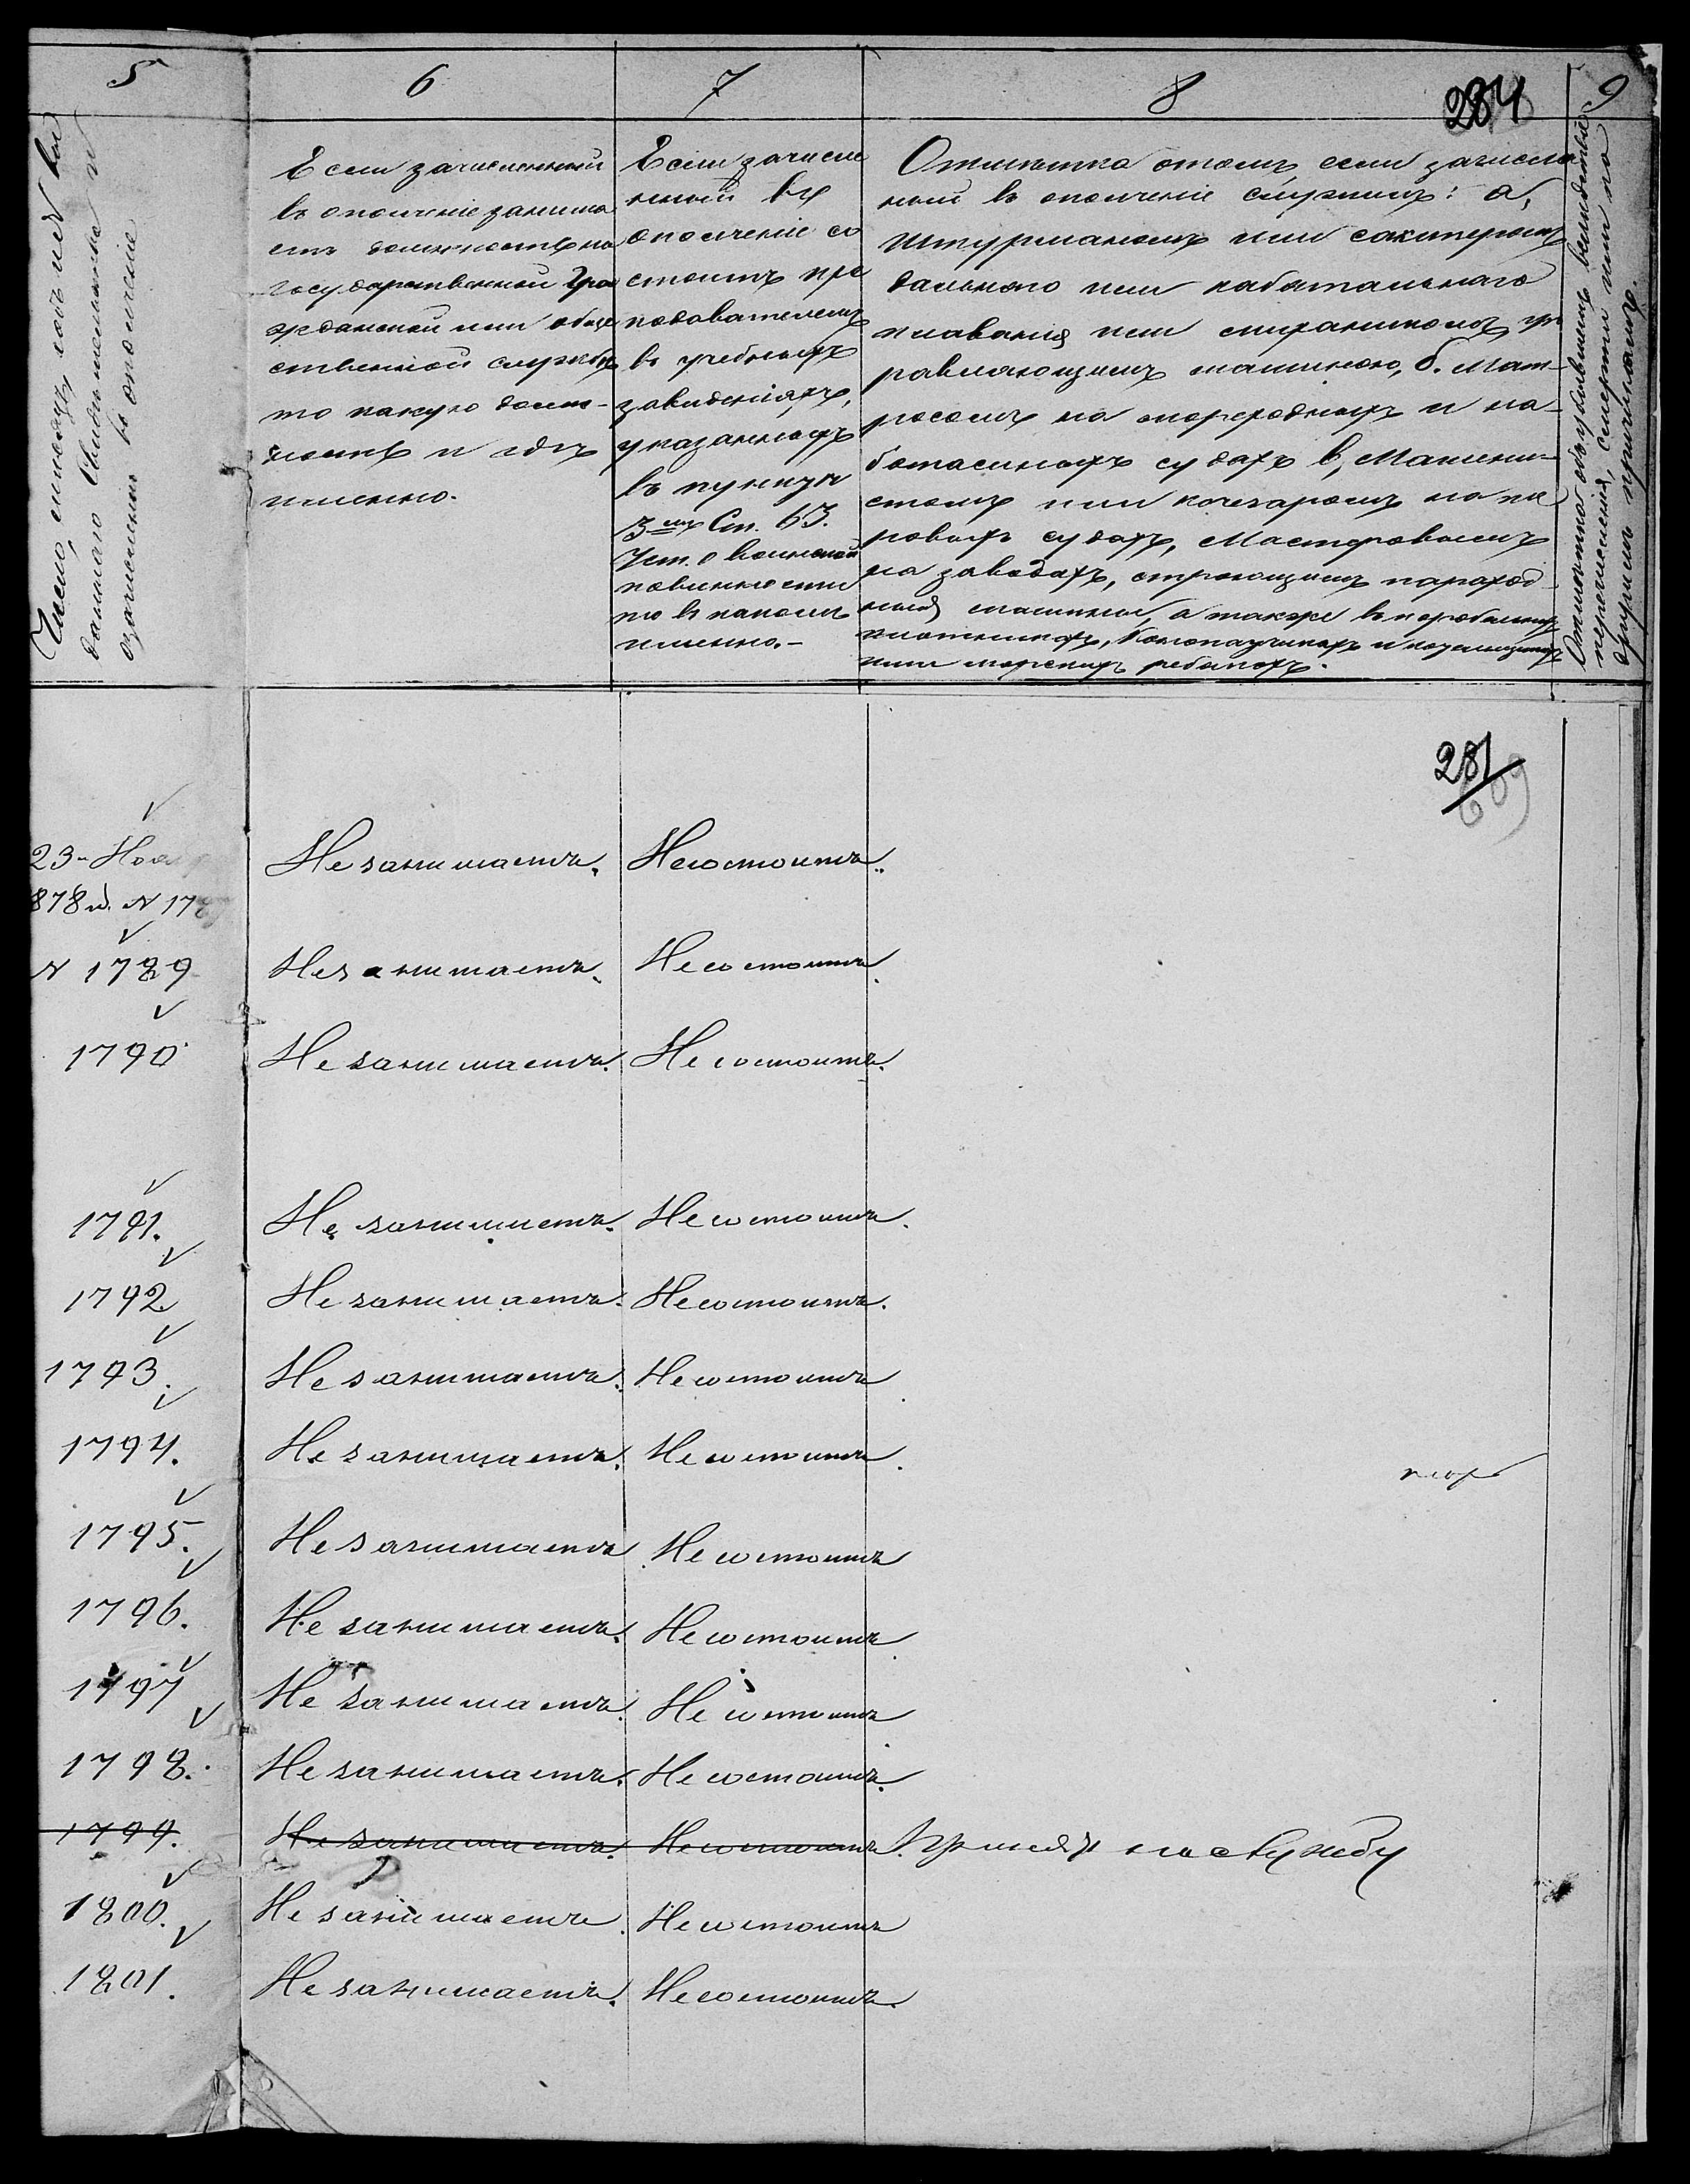 5 6 7 8 9
284
Число, мѣсяцъ, годъ и № вы
даннаго Свидѣтельства и
о зачисленіи въ ополченіе
Если зачисленный
въ ополченіе занима
етъ должность на
государственной Гра
жданской или обще
ственной службѣ
то какую долж-
ность и гдѣ
именно.
Если зачисле
нный въ
ополченіе со
стоитъ пре
подавателемъ
въ учебныхъ
заведеніяхъ,
указанныхъ
въ пунктѣ
3мъ Ст. 63.
Уст. о воинской
повинности
то въ какомъ
именно.-
Отмѣтка о томъ, если зачислен
ный въ ополченіе служилъ: а,
Штурманомъ или шкиперомъ
дальняго или каботажнаго
плаванія или механикомъ, уп
равляющимъ машиною, б. Мат-
росомъ на мореходныхъ и ка-
ботажныхъ судахъ в, Машини-
стомъ или кочегаромъ на па
ровыхъ судахъ, Мастеровымъ
на заводахъ, строющимъ пароход-
ныя машины, а также въ корабельныхъ
плотникахъ, Конопатчикахъ и котельщикахъ
или морскихъ работахъ.
Отмѣтка объ убывшихъ вслѣдствіе
перечисленія, смерти или по
другимъ причинамъ
281
609
23-Нояб
878 г. N 178
Не занимаетъ. Не состоитъ.
N 1789 Не занимаетъ. Не состоитъ.
1790 Не занимаетъ. Не состоитъ.
1791. Не занимаетъ. Не состоитъ.
1792. Не занимаетъ. Не состоитъ.
1793. Не занимаетъ. Не состоитъ.
1794. Не занимаетъ. Не состоитъ.
1795. Не занимаетъ Не состоитъ
1796. Не занимаетъ. Не состоитъ.
1797 Не занимаетъ. Не состоитъ
1798. Не занимаетъ. Не состоитъ.
1799. Не занимаетъ. Не состоитъ. Принятъ на службу
1800. Не занимаетъ. Не состоитъ
1801. Не занимаетъ. Не состоитъ.